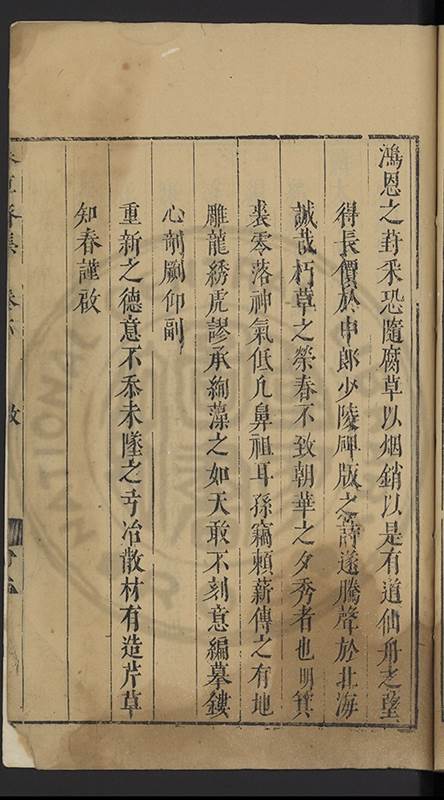 鴻恩之葑采恐隨腐草以烟銷以是有道仙舟之望
得長價於中郎少陵碑版之詩遂騰聲於北海
誠哉朽草之榮春不致朝華之夕秀者也明箕
裘零落神氣低凡鼻祖耳孫竊賴薪傳之有地
雕龍綉虎謬承絢藻之如天敢不刻意編摹鏤
心剞劂仰副
重新之德意不忝未墜之弓冶散材有造芹草
知春謹啟
集 卷六 啟